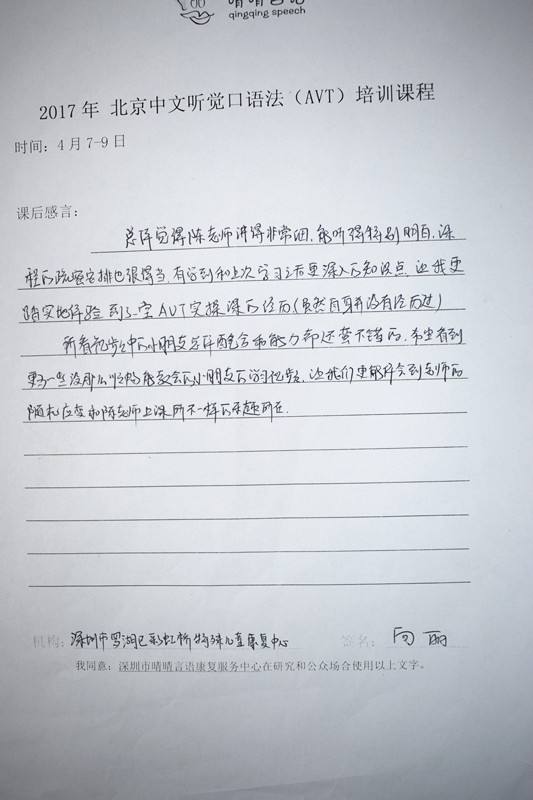 晴晴言语
qingqing speech
2017 年 北京中文听觉口语法（AVT）培训课程
时间：4 月 7-9 日
课后感言：
总体觉得陈老师讲得非常细，能听得特别明白，课
程的疏密安排也很得当，有学到和上次学习之后更深入的知识点，让我更
踏实地体验到了一堂AVT实操课的经历（虽然自身并没有经历过）
所看视频中的小朋友总体配合和能力都还蛮不错的，希望看到
更多一些没那么顺畅能教会的小朋友的学习视频，让我们更能体会到老师的
随机应变和陈老师上课所不一样的乐趣所在.
机构：深圳市罗湖区彩虹桥特殊儿童康复中心
签名：向丽
我同意：深圳市晴晴言语康复服务中心在研究和公众场合使用以上文字。